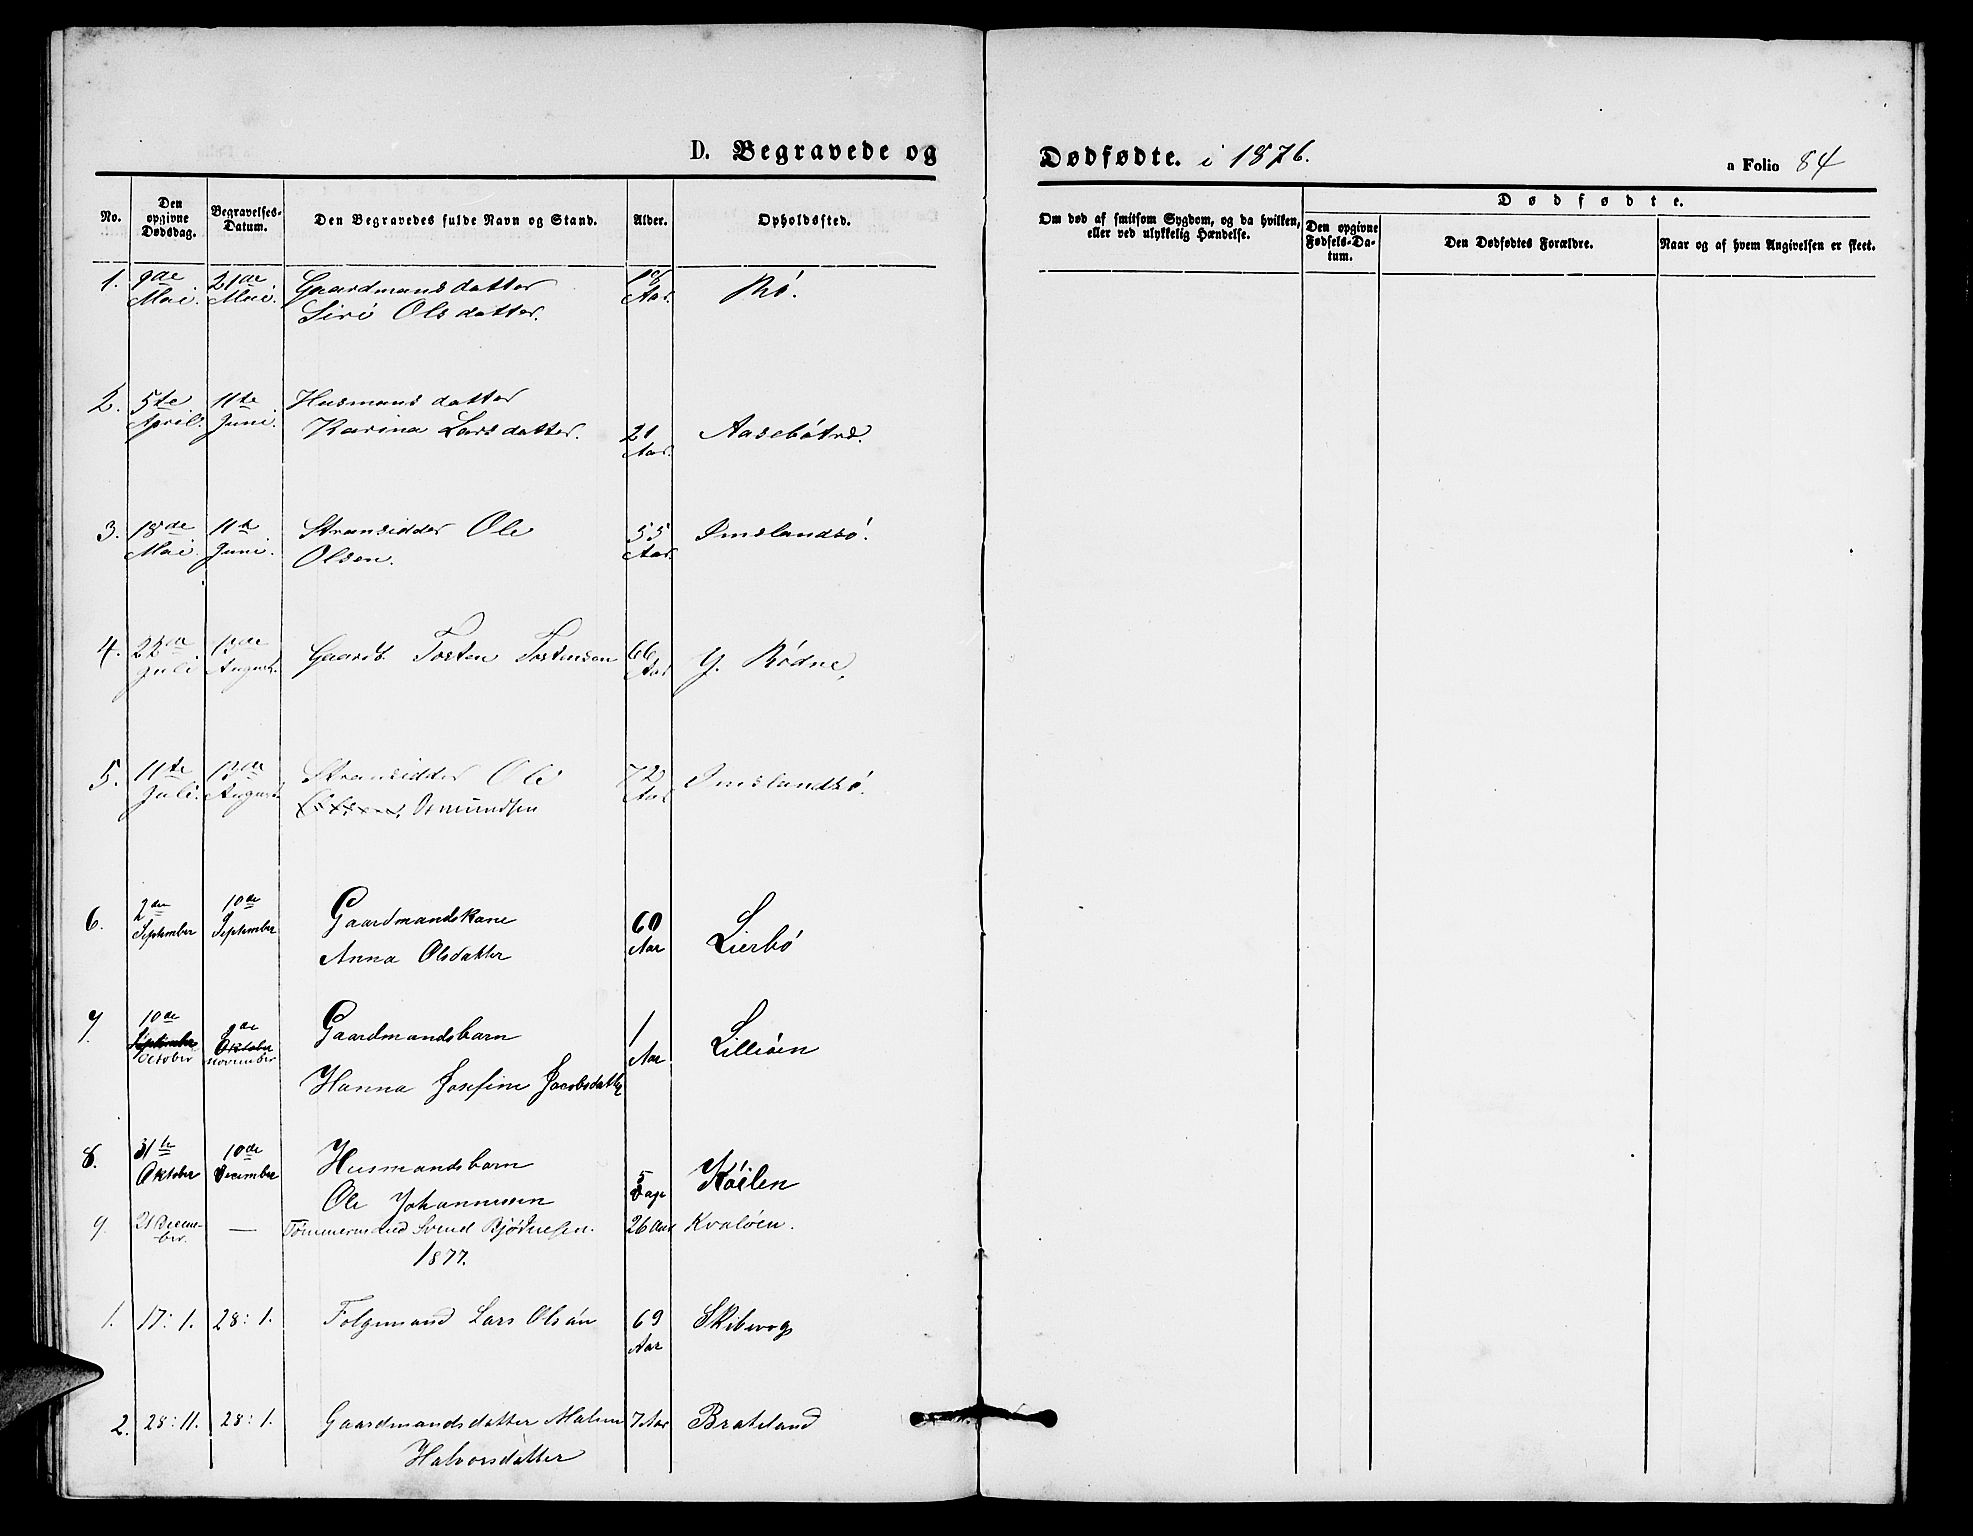 D. Begravede og
Dødfødte. i 1876.
a Folio 84
No.
Den opgivne Dødsdag.
Begravelses-Datum.
Den Begravedes fulde Navn og Stand.
Alder.
Opholdssted.
Om død af smitsom Sygdom, og da hvilken, eller ved ulykkelig Hændelse.
Dødfødte.
Den opgivne Fødsels-Datum.
Den Dødfødtes Forældre.
Naar og af hvem Angivelsen er skeet.
1. 9de 21de Gaardmansdatter
Mai. Mai. Siri Olsdatter. Aar. Rø.
2. 5te 11te Husmansdatter
April. Juni. Karina Larsdatter. 21 Aasebøtræ.
Aar.
3. 18de 11te Stransidder Ole 55 Imslandsø.
Mai. Juni. Olsen. Aar.
4. 22de 13de Gaardb. Tosten Tostensen 66 Y. Rødne,
Juli August. Aar
5. 11te 13de Stransidder Ole 72 Imslandsø.
Juli. August. Osmundsen Aar
6. 2de 10de Gaardmandskone 60
September September Anna Olsdatter Aar Lierbø
7. 10de Gaardmandsbarn 1
September Oktober Aar Lilleøen
October November
Hanna Josefine Jacobsdatter
8. 31te 10de Husmandsbarn 5
Oktober December Ole Johannesen Dage Køilen
9. 21 Decem- — Tømmermand Svend Bjørnesen. 26 Aar Kvaløen.
ber.
1877.
1. 17:1. 28:1. Folgemand Lars Olsøn 69 Skibevog
Aar
2. 28:11. 28:1. Gaardmandsdatter Malene 7 Aar Brateland
Halvorsdatter